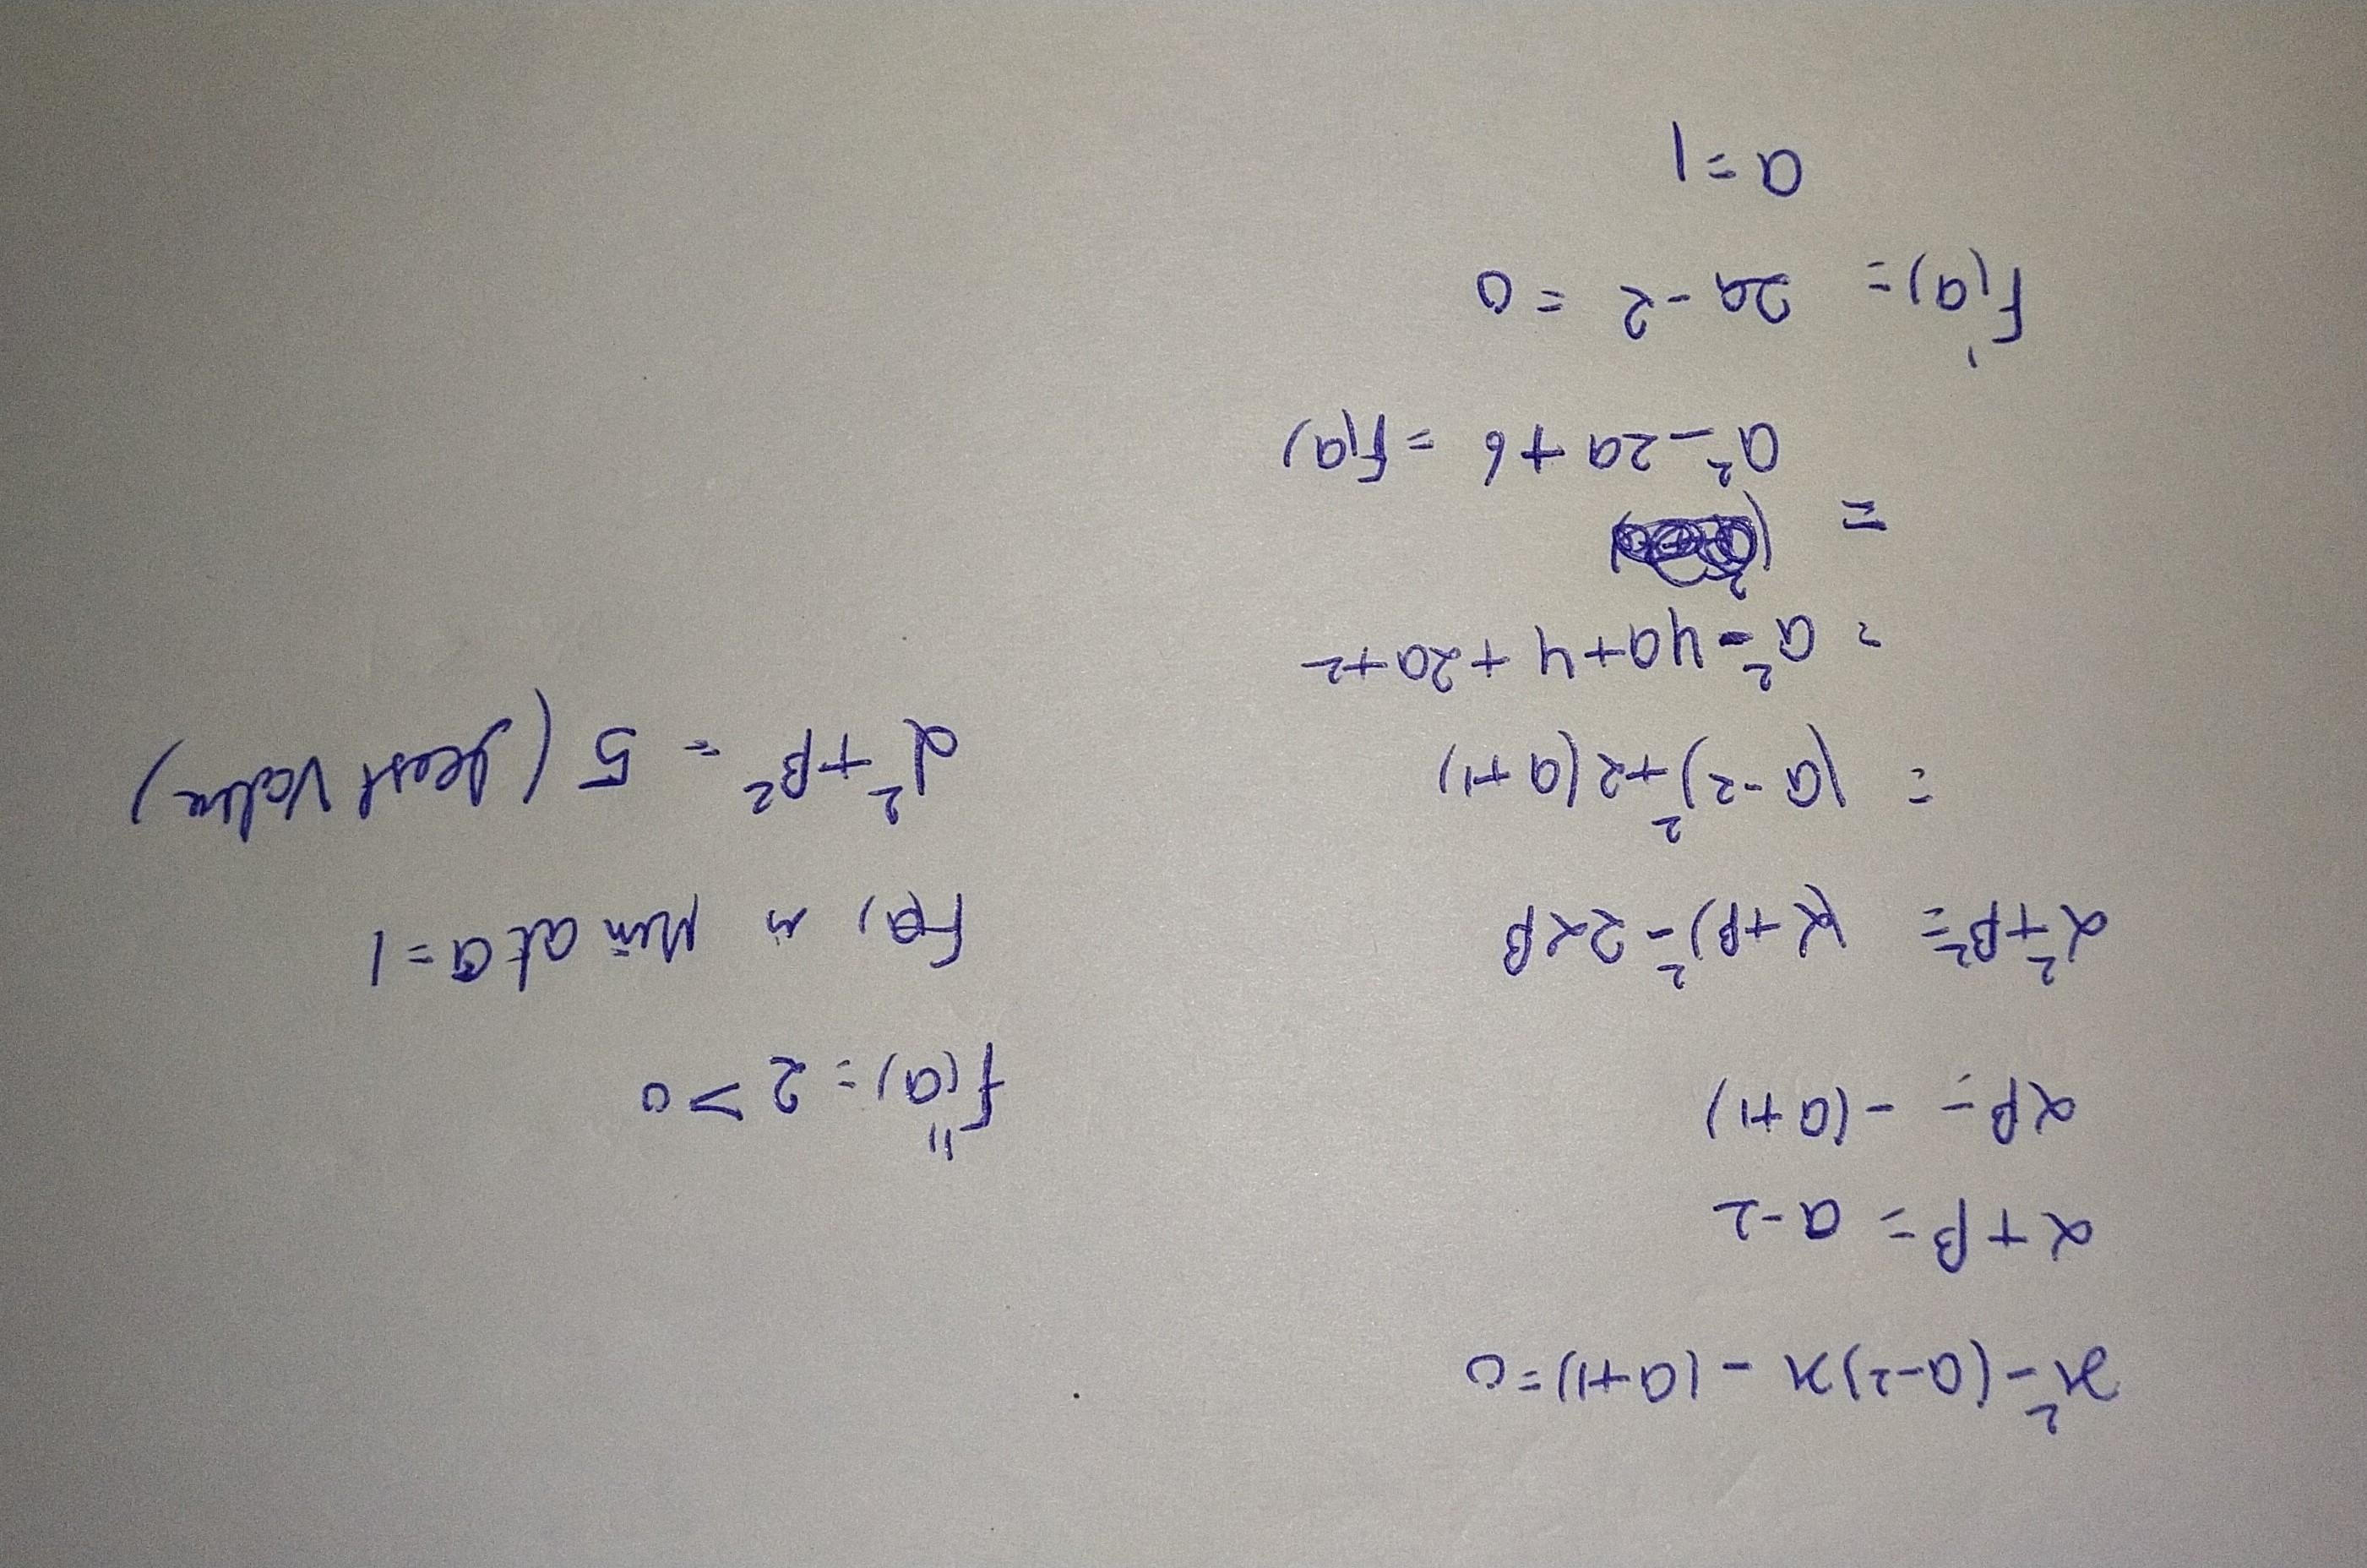 x² - (a-2)x - (a+1) = 0
α + β = a-2
αβ = - (a+1)
α² + β² = (α + β)² - 2αβ
= (a-2)² + 2(a+1)
= a² - 4a + 4 + 2a + 2
=
a² - 2a + 6 = f(a)
f'(a) = 2a - 2 = 0
a = 1
f''(a) = 2 > 0
f(a) is Min at a = 1
α² + β² = 5 (least value)